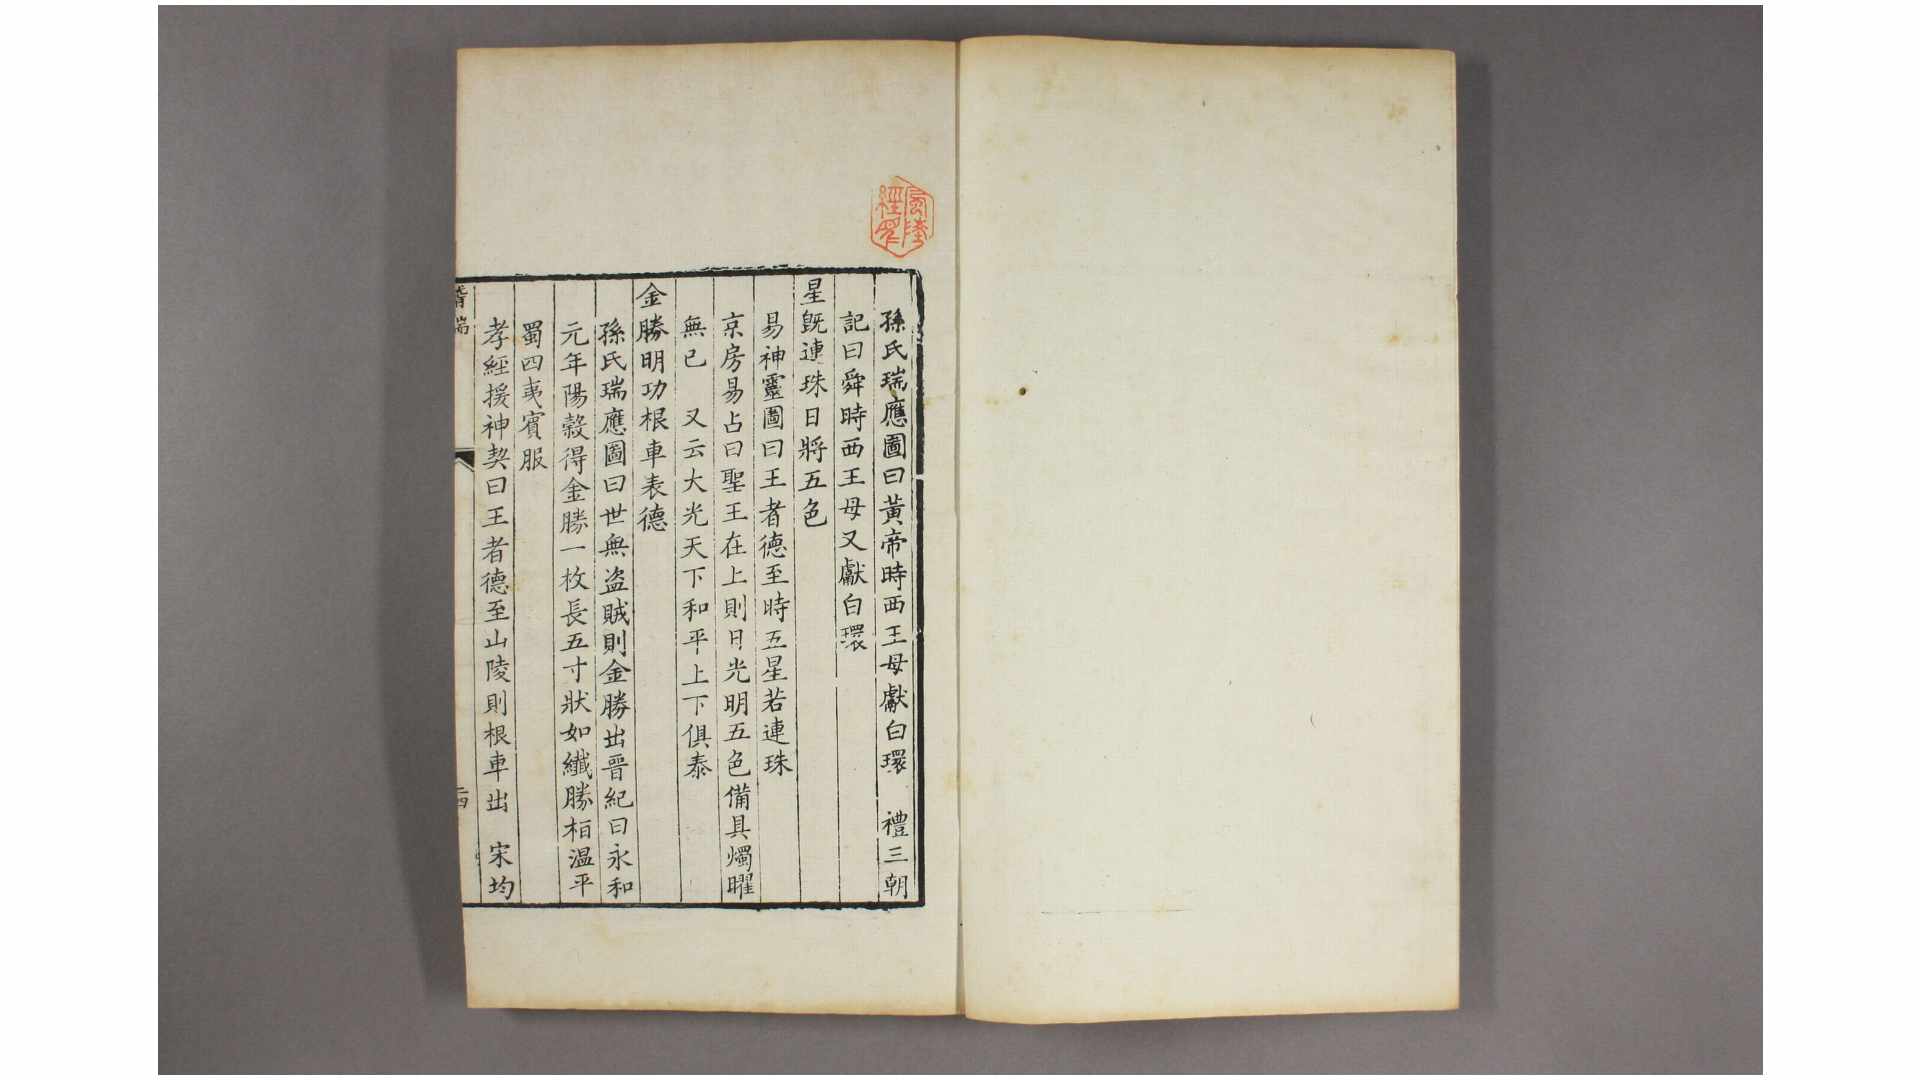 孫氏瑞應圖曰黃帝時西王母獻白環　禮三朝
記曰舜時西王母又獻白環
星旣連珠日將五色
易神靈圖曰王者德至時五星若連珠
京房易占曰聖王在上則日光明五色備具燭曜
無已　又云大光天下和平上下俱泰
金勝明功根車表德
孫氏瑞應圖曰世無盜賊則金勝出晉紀曰永和
元年陽穀得金勝一枚長五寸狀如纖勝栢温平
蜀四夷賓服
孝經援神契曰王者德至山陵則根車出　宋均
稽瑞
二四